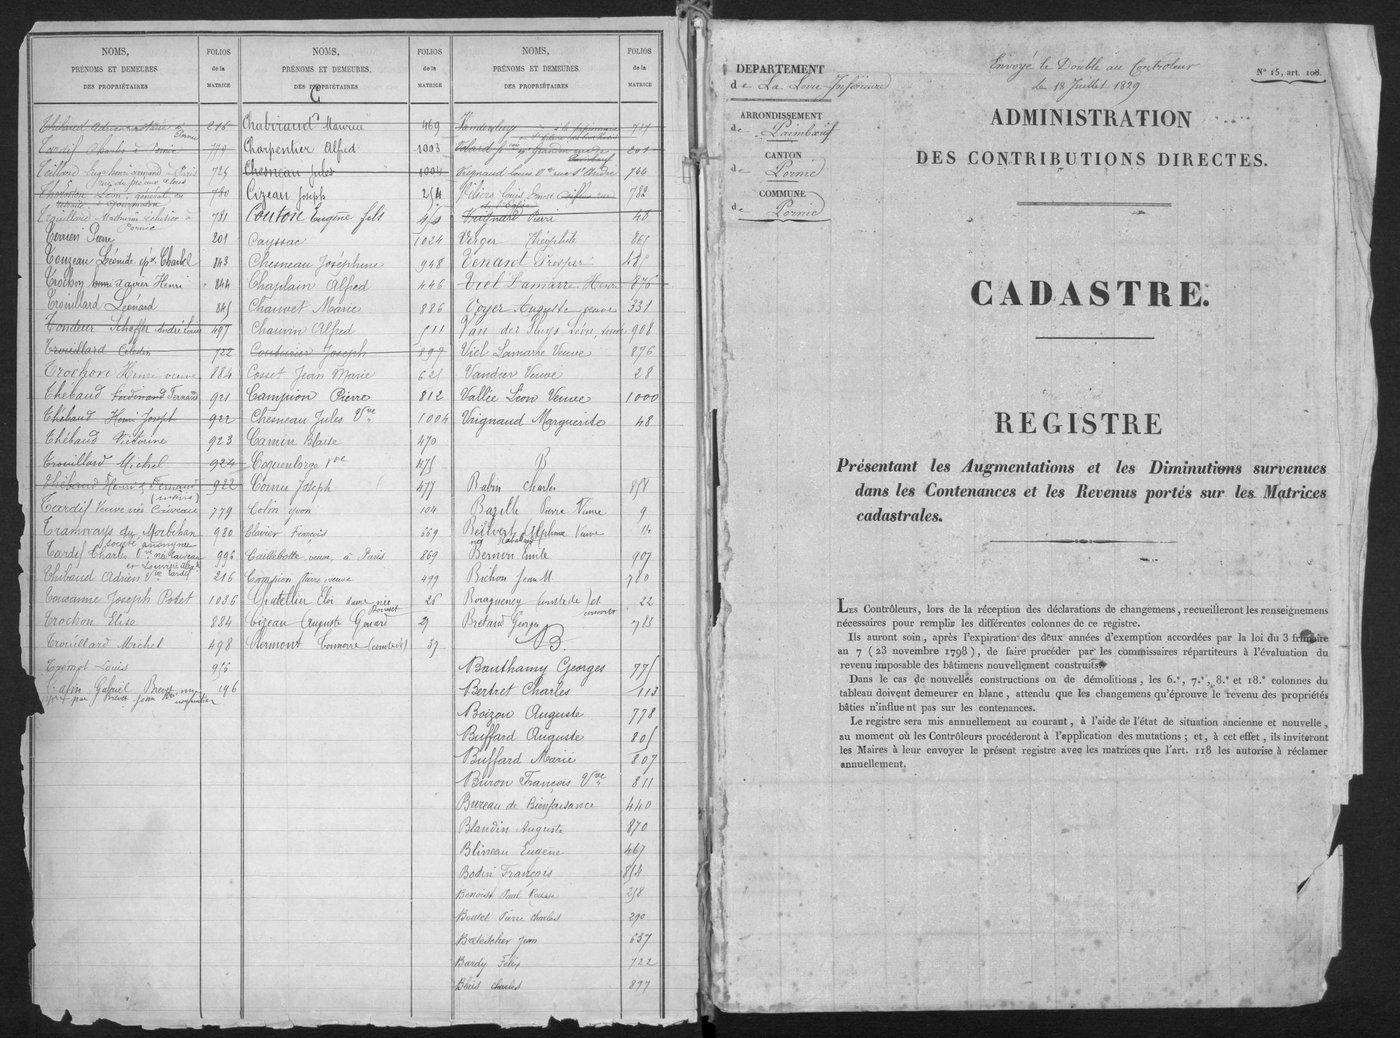 NOMS,
PRÉNOMS ET DEMEURES
DES PROPRIÉTAIRES
FOLIOS
de la
MATRICE
Thébaud Adrien 216
Tardif Charles à Pornic 779
780
781
Pornic
Terrien Pierre 201
Touzeau Léonide ép. Charbel 843
Trochon Henri Xavier Henri 844
Trouillard Léonard 845
Tondeur Scheffer André Louis 497
Trouillard Célestin 722
Trochon Henri veuve 884
Thébaud Ferdinand Fernand 921
Thébaud Henri Joseph 922
Thébaud Victorine 923
Trouillard Michel 924
Thébaud Henri & Fernand 922
Tardif Veuve née Caiveau 779
Tramways du Morbihan 980
société anonyme
Tardif Charles Vve née Caiveau 996
Thibaud Adrien Vve Tardif 216
Toucanne Joseph Podet 1036
Trochon Elise 884
Trouillard Michel 498
Trempt Louis 956
196
NOMS,
PRÉNOMS ET DEMEURES,
DES PROPRIÉTAIRES
FOLIOS
de la
MATRICE
C
Chabiraud Maurice 469
Charpentier Alfred 1003
Chesneau Jules 1004
Cizeau Joseph 254
Coutoir Eugène fils
Cayssac 1024
Chesneau Joséphine 948
Chaplain Alfred 446
Chauvet Marie 886
Chauvin Alfred 511
Couturier Joseph 897
Cosset Jean Marie 621
Campion Pierre 812
Chesneau Jules Vve 1004
Camin Blaise 470
Coquenlorge Vve 475
Cornu Joseph 477
Colin Yvon 104
Clavier François 669
Caillebotte veuve, à Paris 869
Campion Pierre, veuve 499
Chatellier Eloi dame née 26
Cizeau Auguste Gérard 29
Clermont Tonnerre (comte de) 37
NOMS,
PRÉNOMS ET DEMEURES
DES PROPRIÉTAIRES
FOLIOS
de la
MATRICE
201
744
782
Vrignaud Pierre 48
Verger Théophile 865
Venard Prosper 485
Viel Lamarre Henri 876
Voyer Auguste veuve 331
Van der Pluys Léon, veuve 908
Viel Lamarre Veuve 876
Vandier Veuve 28
Vallée Léon Veuve 1000
Vrignaud Marguerite 48
B
Babin Charles 857
Bazille Pierre Veuve 9
Belvert Alphonse Veuve 14
Bernon Emile 907
Bichon Jean M 780
22
Bretand Georges 783
B
Bauthamy Georges 775
Bertret Charles 113
Boizou Auguste 778
Buffard Auguste 805
Buffard Marie 807
Buron François Vve 811
Bureau de Bienfaisance 440
Blandin Auguste 870
Blineau Eugène 467
Bodin François 854
Benoist Paul 258
Boutet Pierre Charles 290
Bretescher Jean 637
Bardy Félix 722
Blais Charles 877
Envoyé le Double au Controleur
Le 18 Juillet 1829
N° 15, art. 108.
DEPARTEMENT
de La Loire Inférieure
ARRONDISSEMENT
de Paimbœuf
CANTON
de Pornic
COMMUNE
de Pornic
ADMINISTRATION
DES CONTRIBUTIONS DIRECTES.
CADASTRE.
REGISTRE
Présentant les Augmentations et les Diminutions survenues
dans les Contenances et les Revenus portés sur les Matrices
cadastrales.
LES Contrôleurs, lors de la réception des déclarations de changemens, recueilleront les renseignemens
nécessaires pour remplir les différentes colonnes de ce registre.
Ils auront soin, après l'expiration des deux années d'exemption accordées par la loi du 3 frimaire
au 7 (23 novembre 1798), de faire procéder par les commissaires répartiteurs à l'évaluation du
revenu imposable des bâtimens nouvellement construits.
Dans le cas de nouvelles constructions ou de démolitions, les 6.e, 7.e, 8.e et 18.e colonnes du
tableau doivent demeurer en blanc, attendu que les changemens qu'éprouve le revenu des propriétés
bâties n'influent pas sur les contenances.
Le registre sera mis annuellement au courant, à l'aide de l'état de situation ancienne et nouvelle,
au moment où les Contrôleurs procéderont à l'application des mutations; et, à cet effet, ils inviteront
les Maires à leur envoyer le présent registre avec les matrices que l'art. 118 les autorise à réclamer
annuellement.